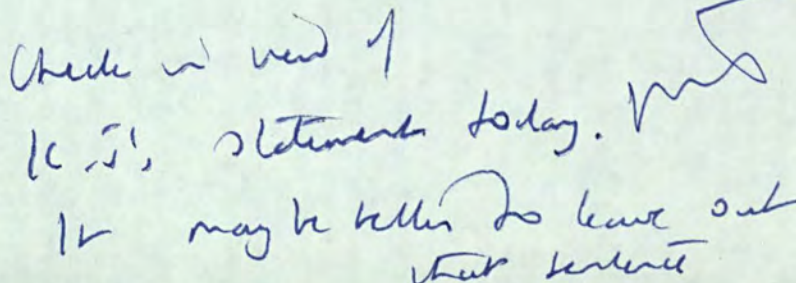 Check in view of
K.J's statement today. mt
It may be better to leave out
that sentence